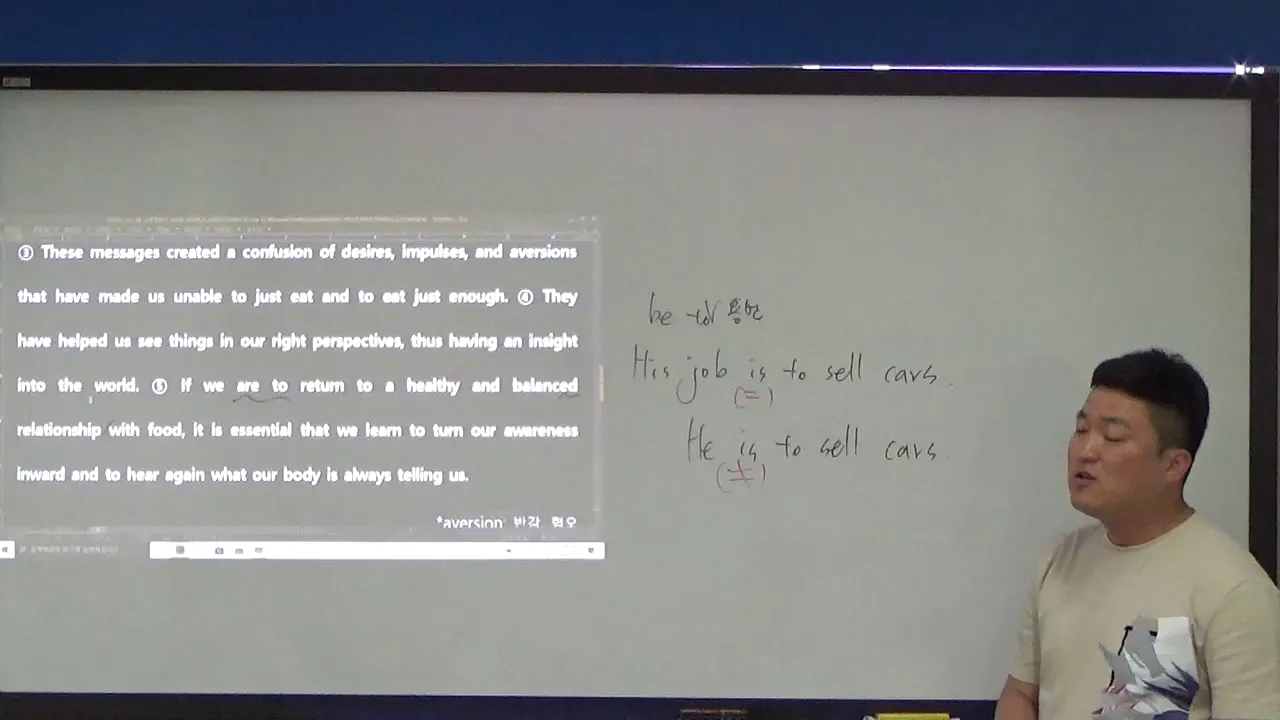 ③ These messages created a confusion of desires, impulses, and aversions
that have made us unable to just eat and to eat just enough. ④ They
have helped us see things in our right perspectives, thus having an insight
into the world. ⑤ If we are to return to a healthy and balanced
relationship with food, it is essential that we learn to turn our awareness
inward and to hear again what our body is always telling us.
*aversion 반감, 혐오
be to용법
His job is to sell cars.
(=)
He is to sell cars.
(≠)